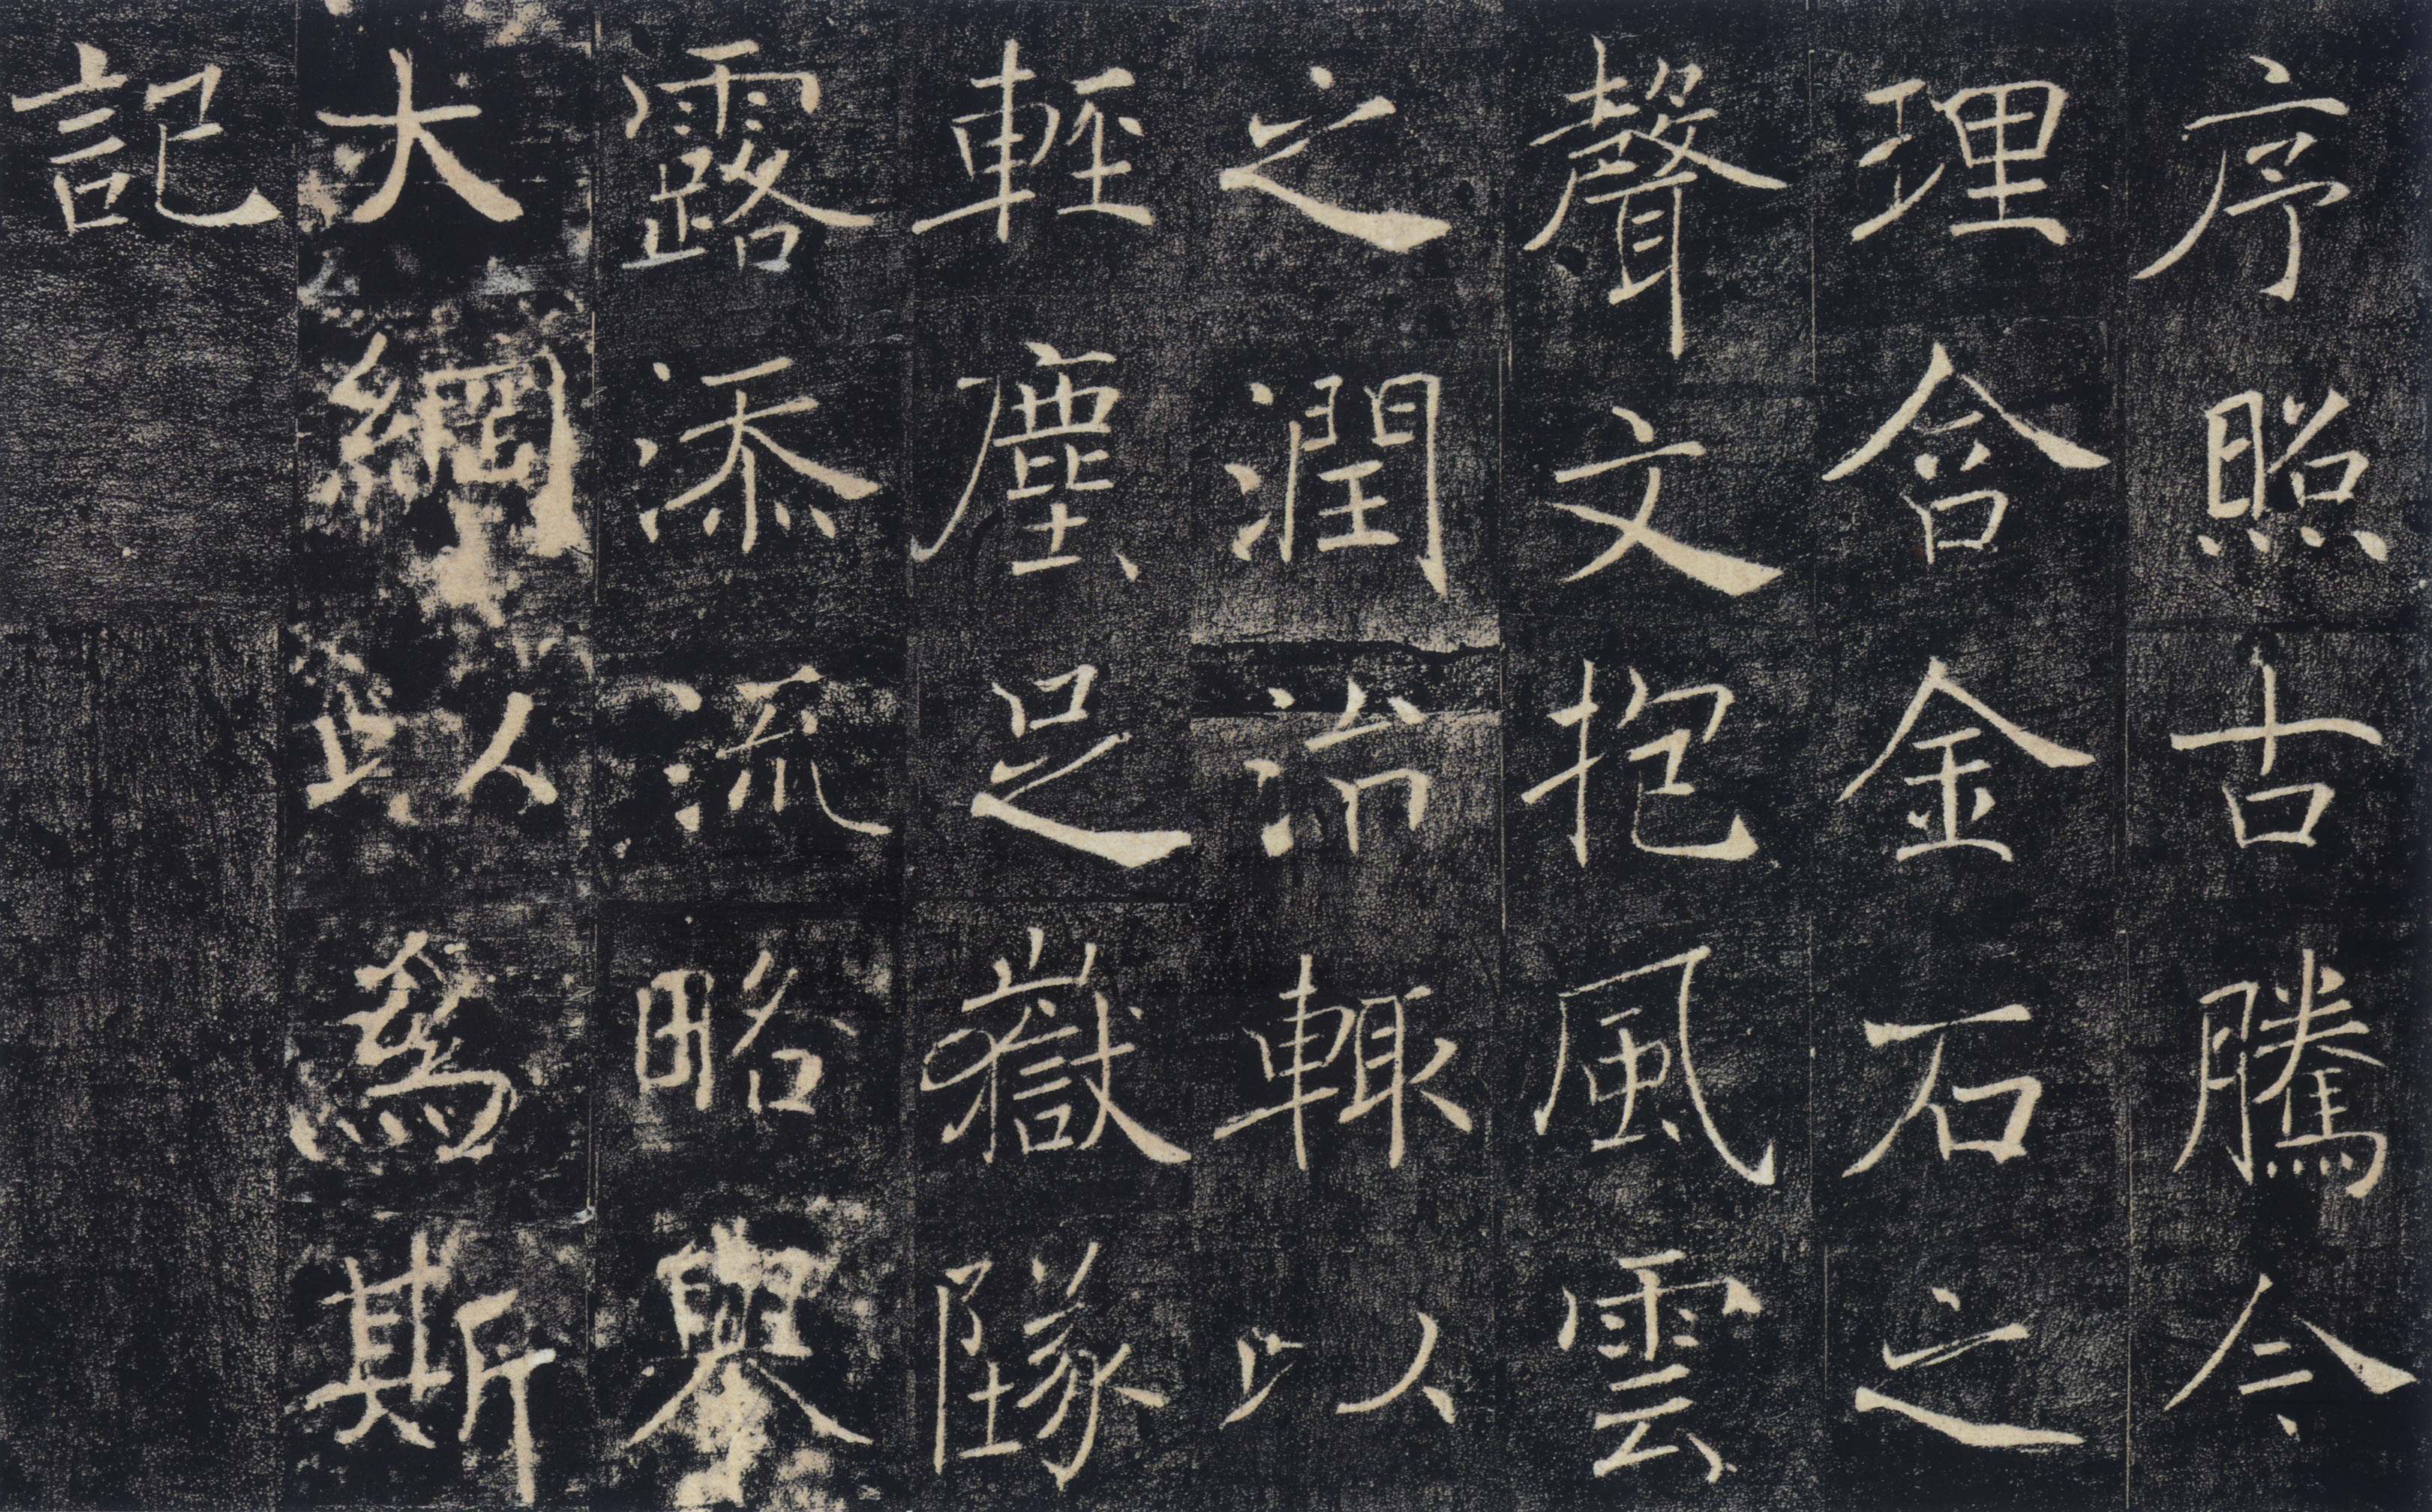 序照古腾今
理含金石之
聲文抱風雲
之潤治輙以
輕塵足嶽墜
露添流略舉
大綱以為斯
記